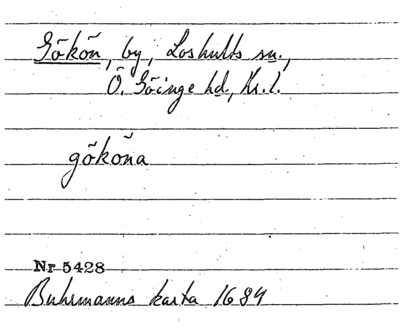 Gökön, by, Loshults sn.,
Ö. Göinge hd., Kr. l.
gököna
Nr 5428
Buhrmanns karta 1684